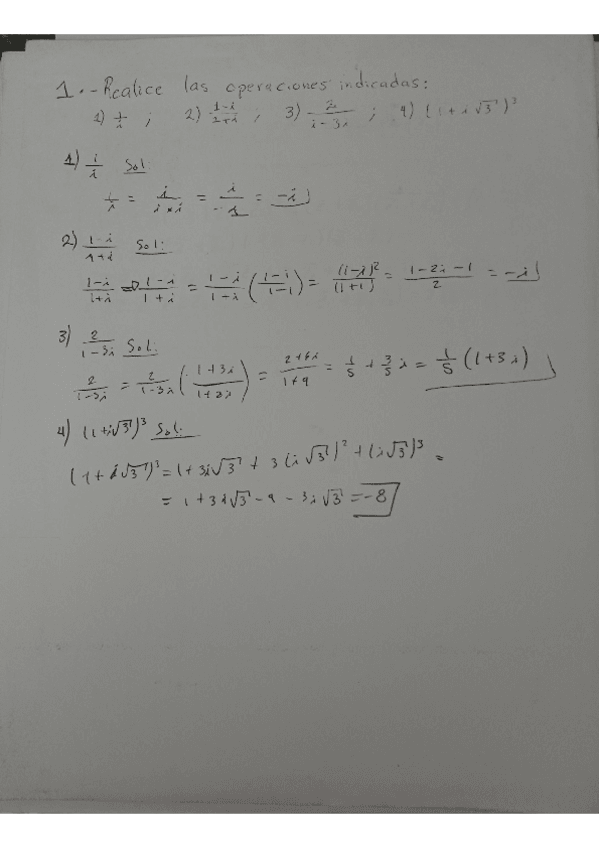 1.-Realice las operaciones indicadas:
1) 1/i ; 2) 1-i/1+i ; 3) 2/1-3i ; 4) (1+i√3)³
1) 1/i Sol:
1/i = i/i×i = i/-1 = -i
2) 1-i/1+i Sol:
1-i/1+i = 1-i/1+i = 1-i/1-i (1-i/1-i) = (1-i)²/(1+1) = 1-2i-1/2 = -i
3) 2/1-3i Sol:
2/1-3i = 2/1-3i (1+3i/1+3i) = 2+6i/1+9 = 1/5 + 3/5 i = 1/5 (1+3i)
4) (1+i√3)³ Sol:
(1+i√3)³ = 1+3i√3 + 3(i√3)² + (i√3)³ =
= 1+3i√3-9-3i√3 = -8